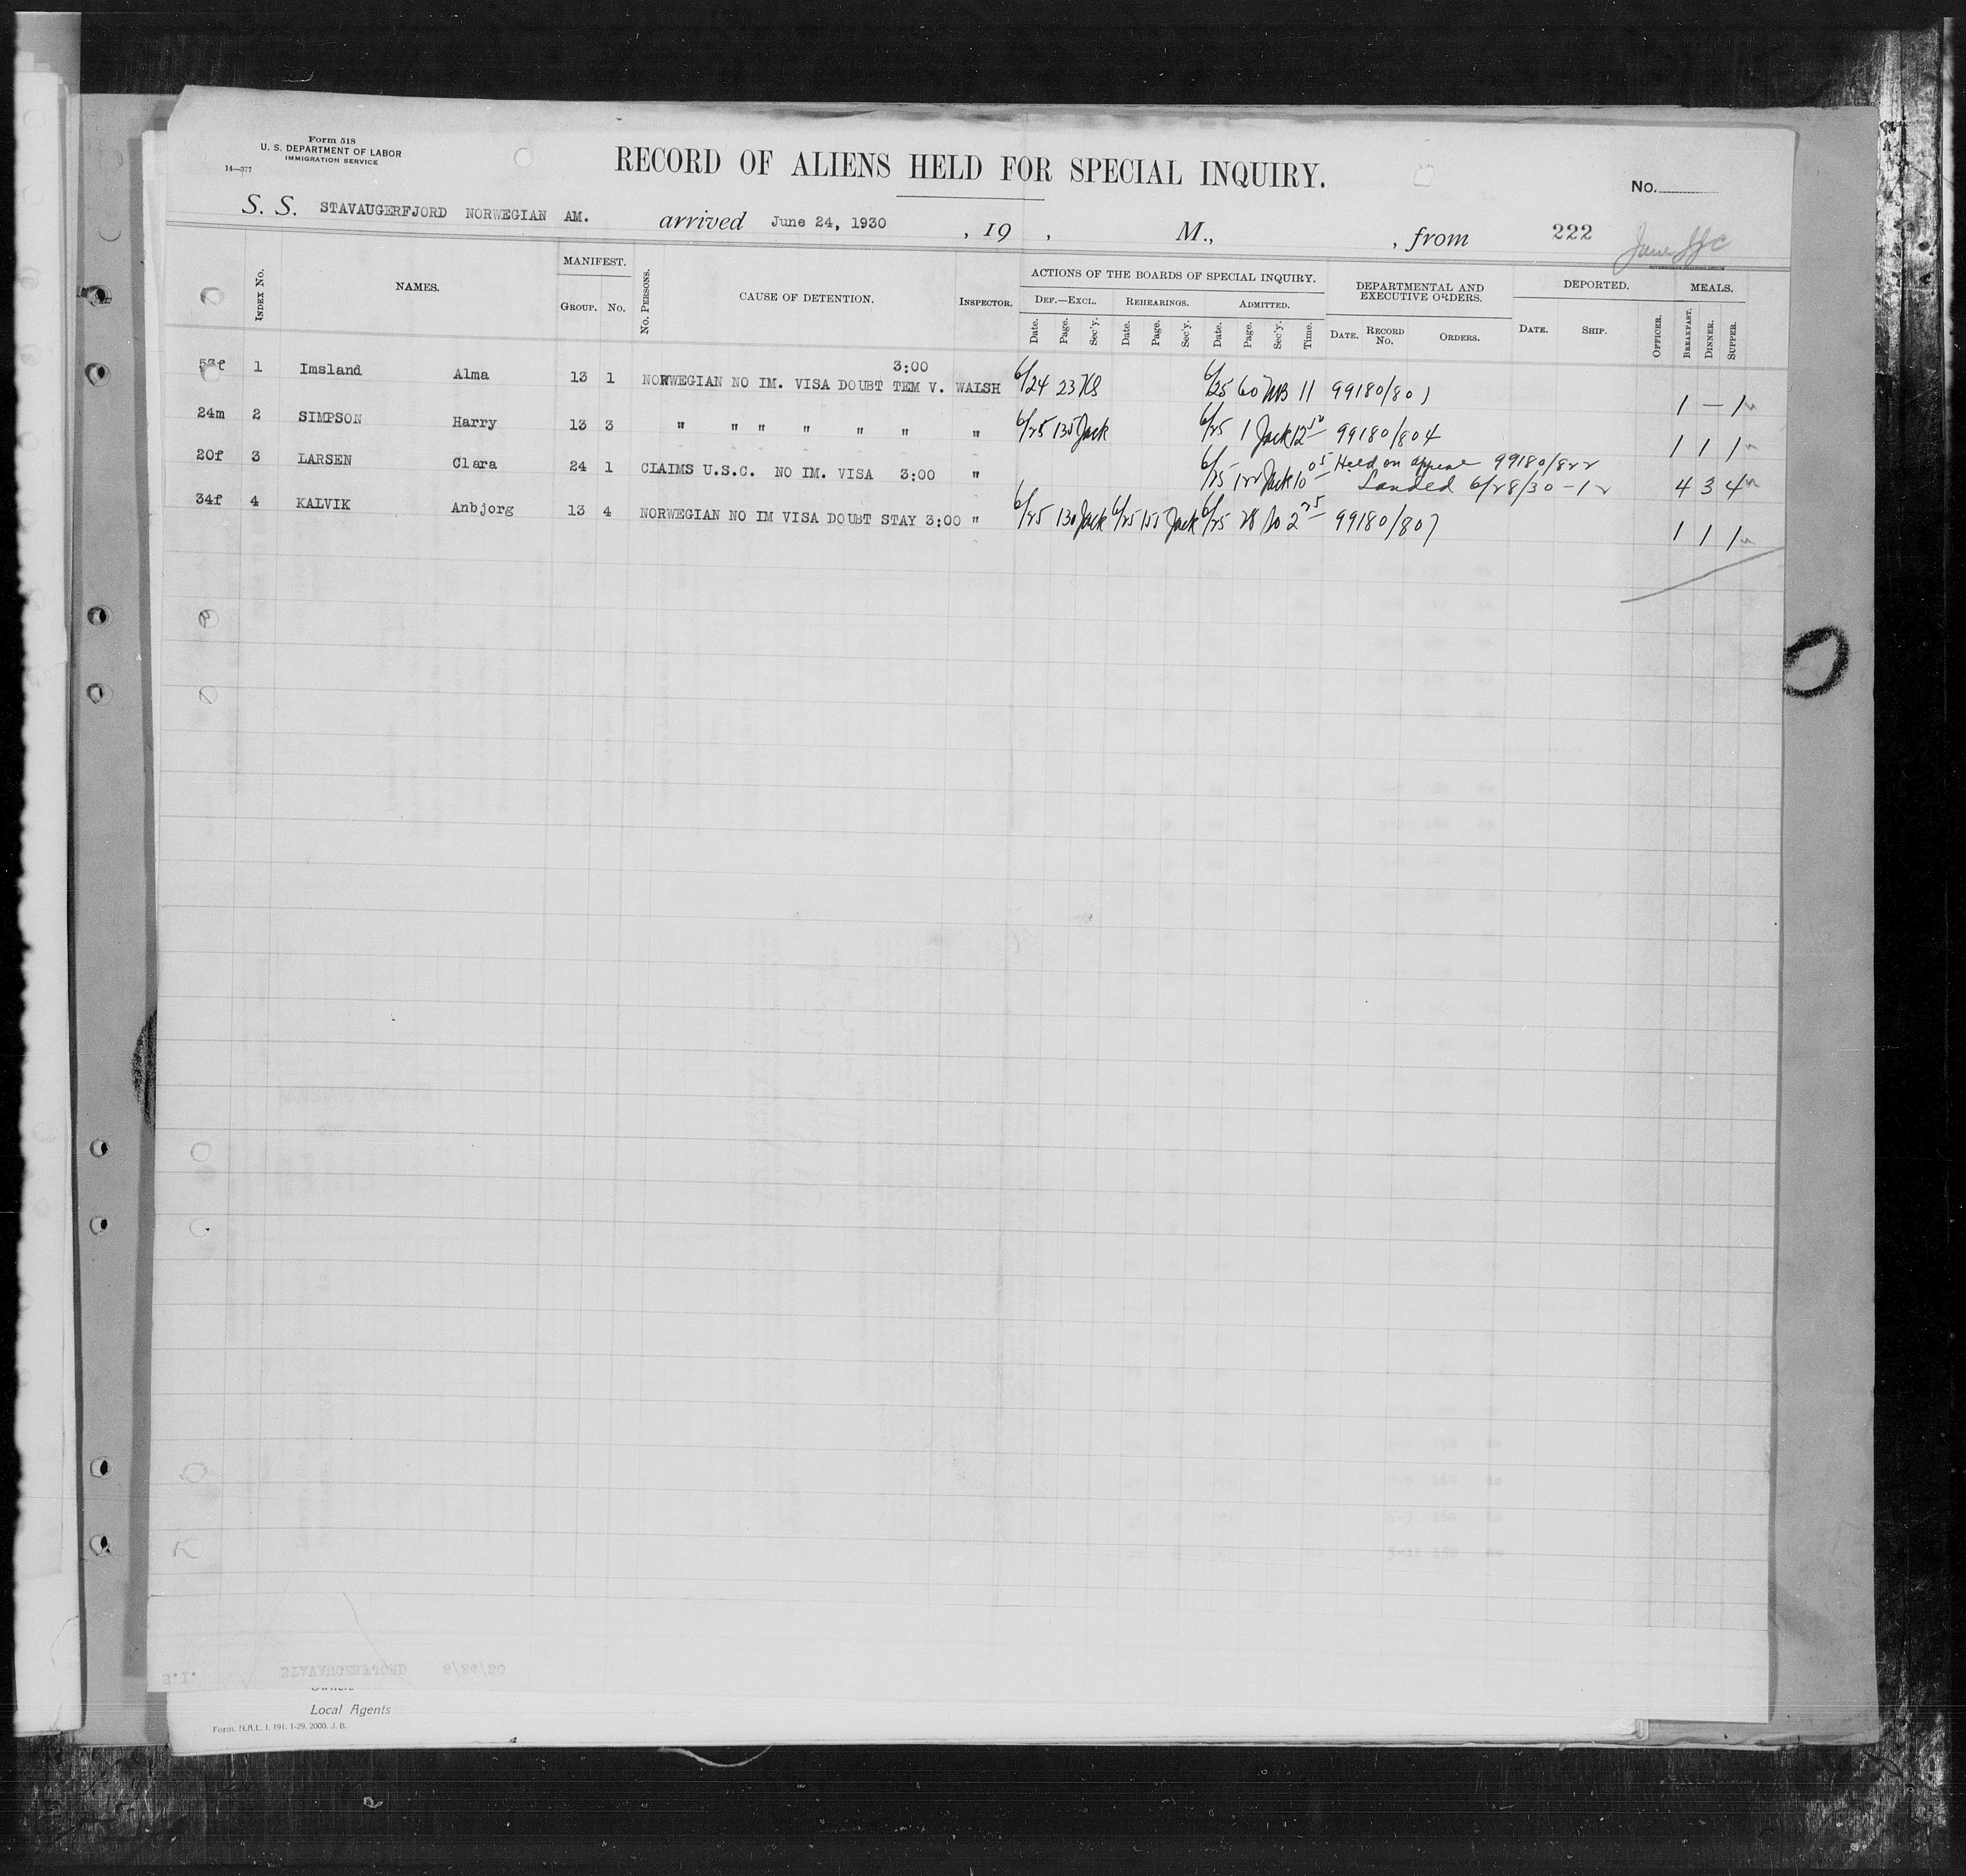 Form 518
U. S. DEPARTMENT OF LABOR
IMMIGRATION SERVICE
14—377
RECORD OF ALIENS HELD FOR SPECIAL INQUIRY.
No.
S. S. STAVAUGERFJORD NORWEGIAN AM. arrived June 24, 1930 , 19 , M., , from 222
INDEX No. NAMES. MANIFEST. GROUP. No. No. PERSONS. CAUSE OF DETENTION. INSPECTOR.
ACTIONS OF THE BOARDS OF SPECIAL INQUIRY.
DEF.—EXCL. REHEARINGS. ADMITTED.
Date. Page. Sec'y. Date. Page. Sec'y. Date. Page. Sec'y. Time.
DEPARTMENTAL AND EXECUTIVE ORDERS.
DATE. RECORD No. ORDERS.
DEPORTED.
DATE. SHIP. OFFICER.
MEALS.
BREAKFAST. DINNER. SUPPER.
3:00
1 Imsland Alma 13 1 NORWEGIAN NO IM. VISA DOUBT TEM V. WALSH 6/24 23 6/25 60 11 99180/801 1 — 1
24m 2 SIMPSON Harry 13 3 " " " " " " " 6/25 135 Jack 6/25 1 Jack 12 50 99180/804 1 1 1
20f 3 LARSEN Clara 24 1 CLAIMS U.S.C. NO IM. VISA 3:00 " 6/25 122 Jack 10 05 Held on appeal 99180/822
Landed 6/28/30 - 12 4 3 4
34f 4 KALVIK Anbjorg 13 4 NORWEGIAN NO IM VISA DOUBT STAY 3:00 " 6/25 130 Jack 6/25 155 Jack 6/25 28 2 25 99180/807 1 1 1
Local Agents
Form. N.A.L. I. 191. 1-29. 2000. J. B.